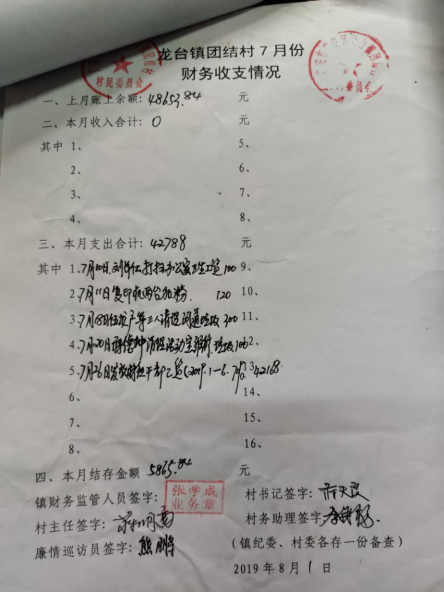 龙台镇团结村7月份
财务收支情况
村民委员会
一、上月账上余额:48653.84 元
二、本月收入合计:0 元
其中 1、 5、
2、 6、
3、 7、
4、 8、
三、本月支出合计:42788 元
其中 1、7月10日 打扫办公室卫生工资 100 9、
2、7月11日复印机两台加粉. 120 10、
3、7月18日 等3人清理河道垃圾 300 11、
4、7月20日 清理活动室 垃圾 100 12、
5、7月26日发放村社干部工资(2019.1-6.) 42168 13、
6、 14、
7、 15、
8、 16、
四、本月结存金额 5865.84 元
镇财务监管人员签字: 张学成 村书记签字:
业务章
村主任签字: 村务助理签字:
廉情巡访员签字:熊 (镇纪委、村委各存一份备查)
2019年8月1日